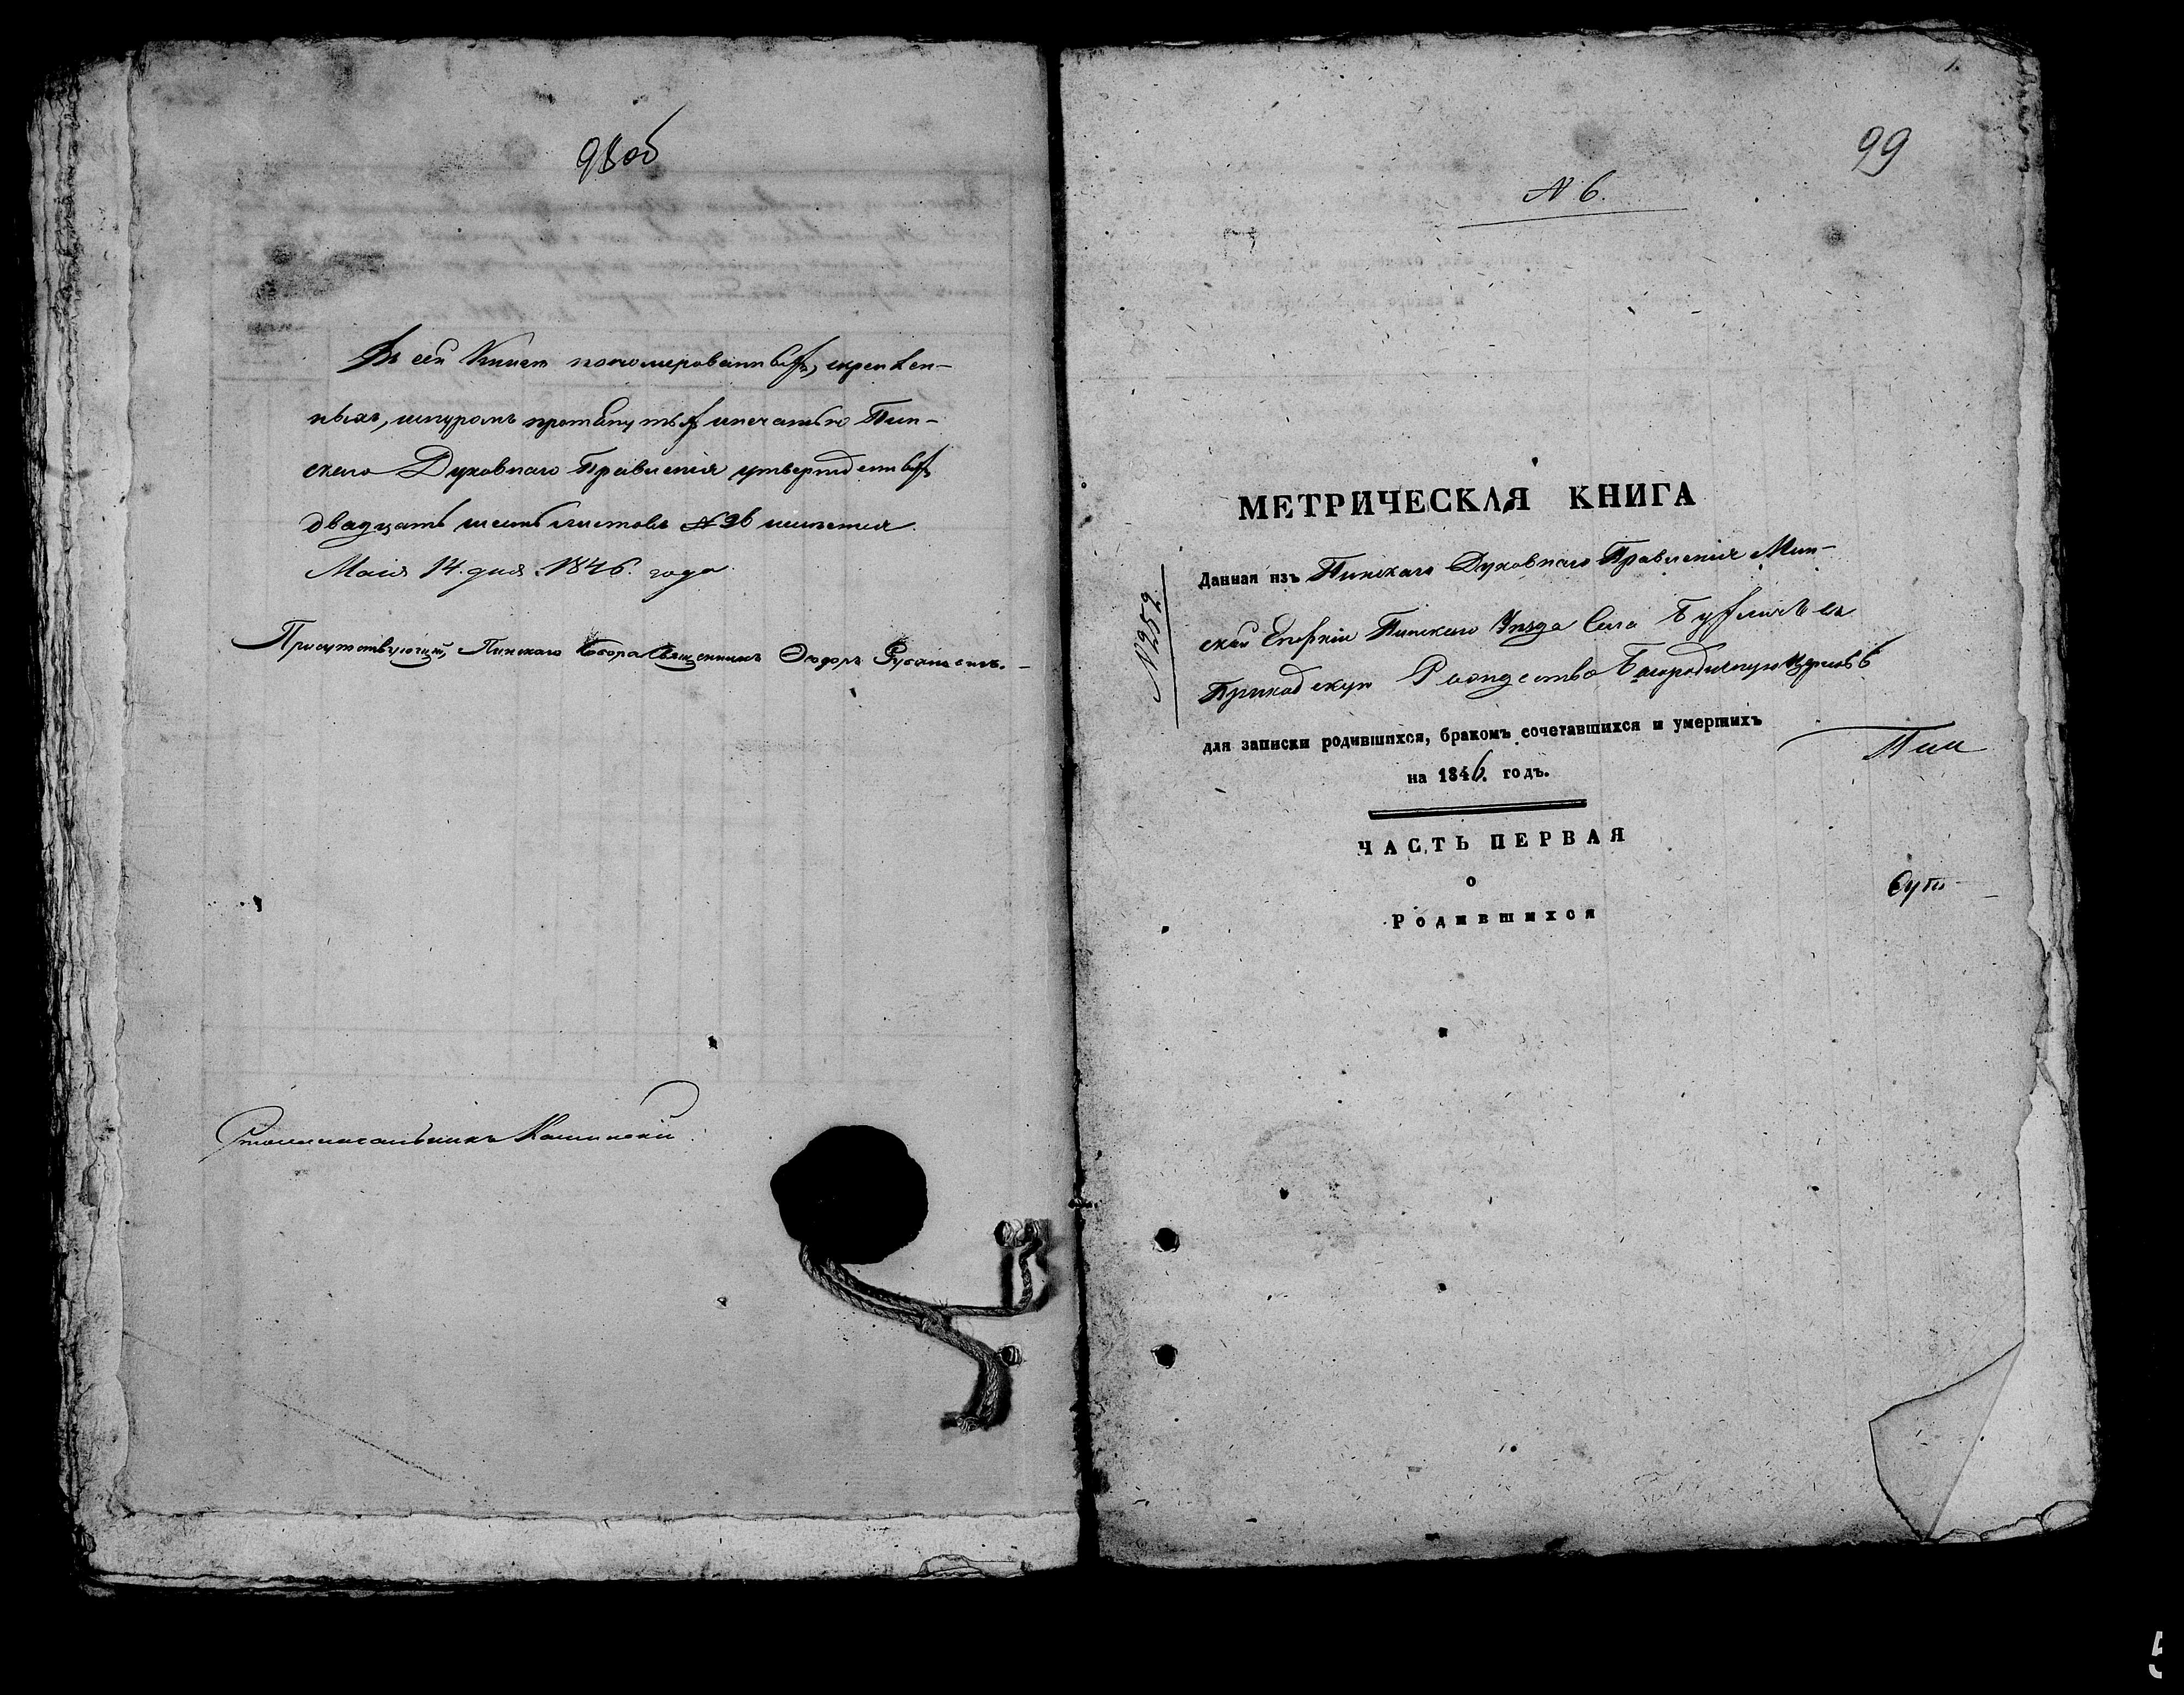 98 об
Въ сей Книгѣ пономерованныхъ, скреплен-
ныхъ, шнуромъ протянутыхъ и печатью Пин-
скаго Духовнаго Правленія утвержденныхъ
двадцать шесть листовъ № 26 имѣется
Маія 14. дня 1846. года.
Присутствующій, Пинскаго Собора Священникъ Ѳеодоръ
Столоначальникъ
99
N 6.
МЕТРИЧЕСКАЯ КНИГА
N 252
Данная изъ Пинскаго Духовнаго Правленія Мин-
ской Епархіи Пинскаго Уѣзда Села
Приходскую Рождество Богородичную Церковь
для записки родившихся, бракомъ сочетавшихся и умершихъ
на 1846. годъ.
Пин
ЧАСТЬ ПЕРВАЯ
о
Родившихся